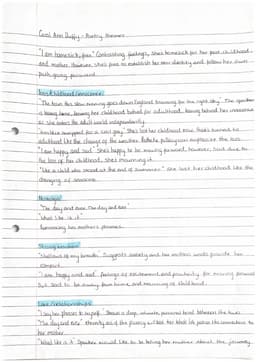 Carol Ann Duffy - Poetry themes
"I am homesick, free." Contrasting feelings, she's homesick for her past childhood
and mother. However she's free to establish her own identity and follow her own
path going forward.
lost childhood/innocence
"The train this slow evening goes down England browsing for the right sky" The speaker
is leaving home, leaving her childhood behind for adulthood, leaving behind her innocence
as she enters the adult world independently.
"too blue swapped for a cool grey" She's lost her childhood now that's turned to
adulthood like the change of the weather. Pathetic fallacy can emphasise the loss.
"I am happy and sad" She's happy to be moving forward, however, sad due to
the loss of her childhood, she's mourning it.
"like a child who stood at the end of summer" She lost her childhood like the
changing of seasons.
Nostalgia
"The day and ever. The day and ever"
"What like is it"
Remembering her mother's phrases.
Strong emotions
"shallows of my breath" Suggests anxiety and her mothers words provide her
comfort.
"I am happy and sad" feelings of excitement and positivity for moving forward
but sad to be away from home and mourning of childhood.
Love / relationships
"I say her phrases to myself" Shows a deep, intimate, personal bond between the two.
"The day and ever"
her mother.
"What like is it" Speaker would like to be telling her mother about the journey.